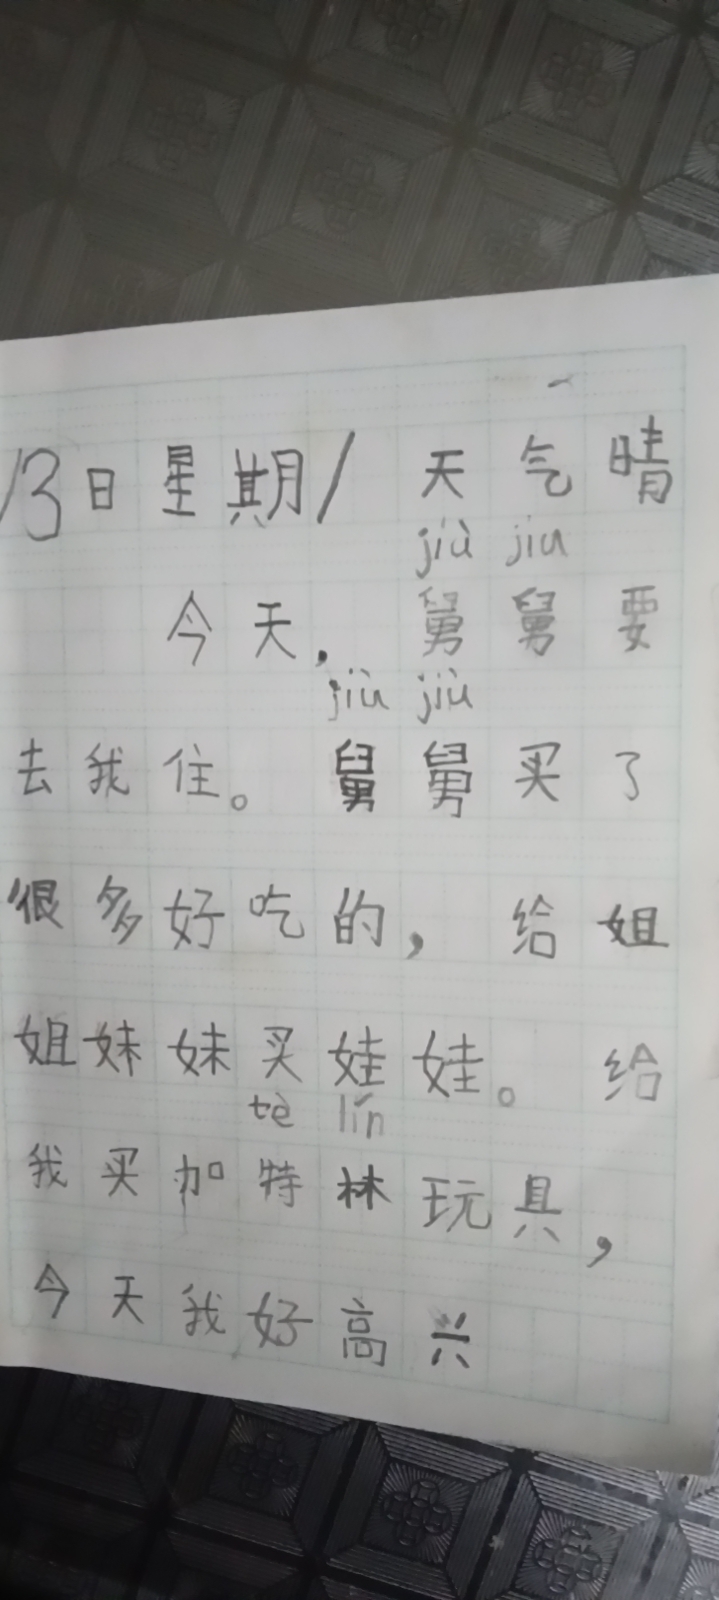 13日星期1 天气晴
jiù jiu
今天，舅舅要
jiù jiù
去我住。舅舅买了
很多好吃的，给姐
姐妹妹买娃娃。给
tè lín
我买加特林玩具，
今天我好高兴